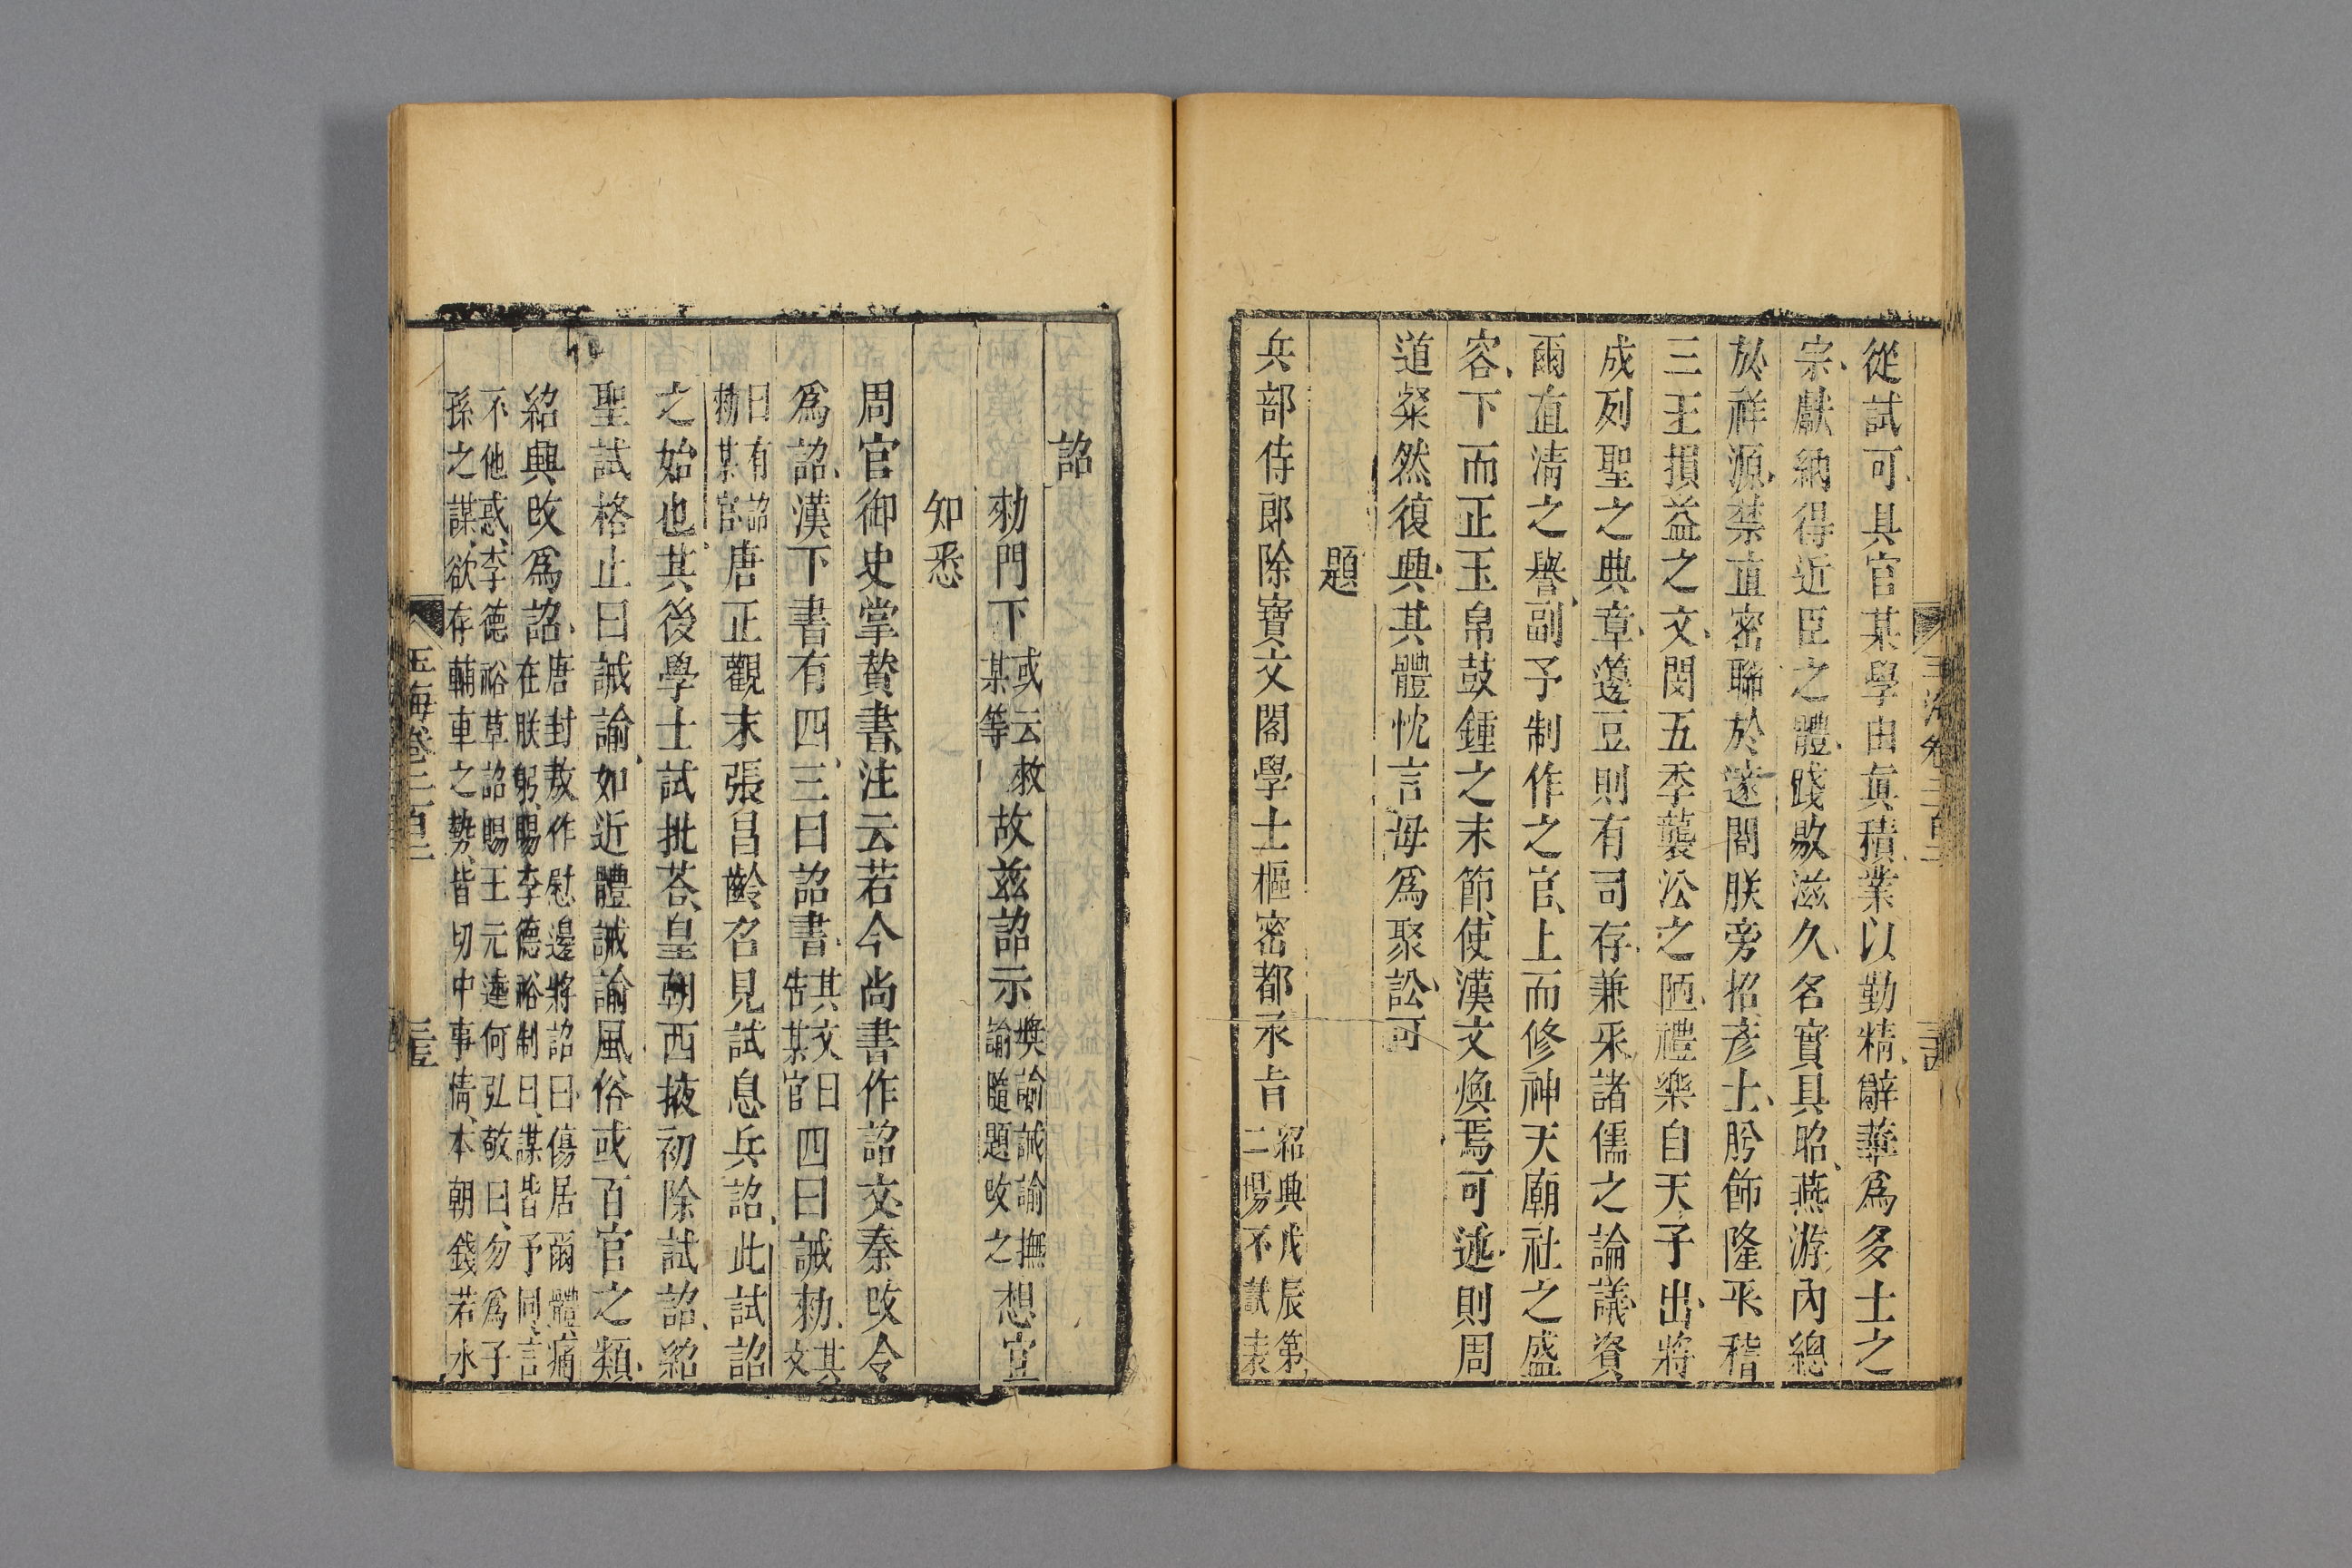 從試可具官某學由眞積業以勤精辭華爲多士之
宗獻納得近臣之體踐敭滋久名實具昭燕游內總
於祥源禁直密聯於邃閣朕旁招彥士肸飾隆平稽
三王損益之文閔五季襲沿之陋禮樂自天子出將
成列聖之典章籩豆則有司存兼采諸儒之論議資
爾直清之譽副予制作之官上而修神天廟社之盛
容下而正玉帛鼓鍾之末節使漢文煥焉可述則周
道粲然復興其體忱言毋爲聚訟可
題
兵部侍郎除寶文閣學士樞密都承旨紹興戊辰第二場不試表
詔
勑門下或云敕某等故兹詔示奬諭誡諭撫諭隨題攺之想宜
知悉
周官御史掌贊書注云若今尚書作詔文秦攺令
爲詔漢下書有四三曰詔書其文曰告某官四曰誡勑其文
曰有詔勑某官唐正觀末張昌齡召見試息兵詔此試詔
之始也其後學士試批荅皇朝西掖初除試詔紹
聖試格止曰誡諭如近體誡諭風俗或百官之類
紹興攺爲詔唐封敖作慰邊將詔曰傷居爾體痛在朕躬賜李德裕制曰謀皆予同言
不他惑李德裕草詔賜王元逵何弘敬曰勿爲子孫之謀欲存輔車之勢皆切中事情本朝錢若水
玉海卷二百二